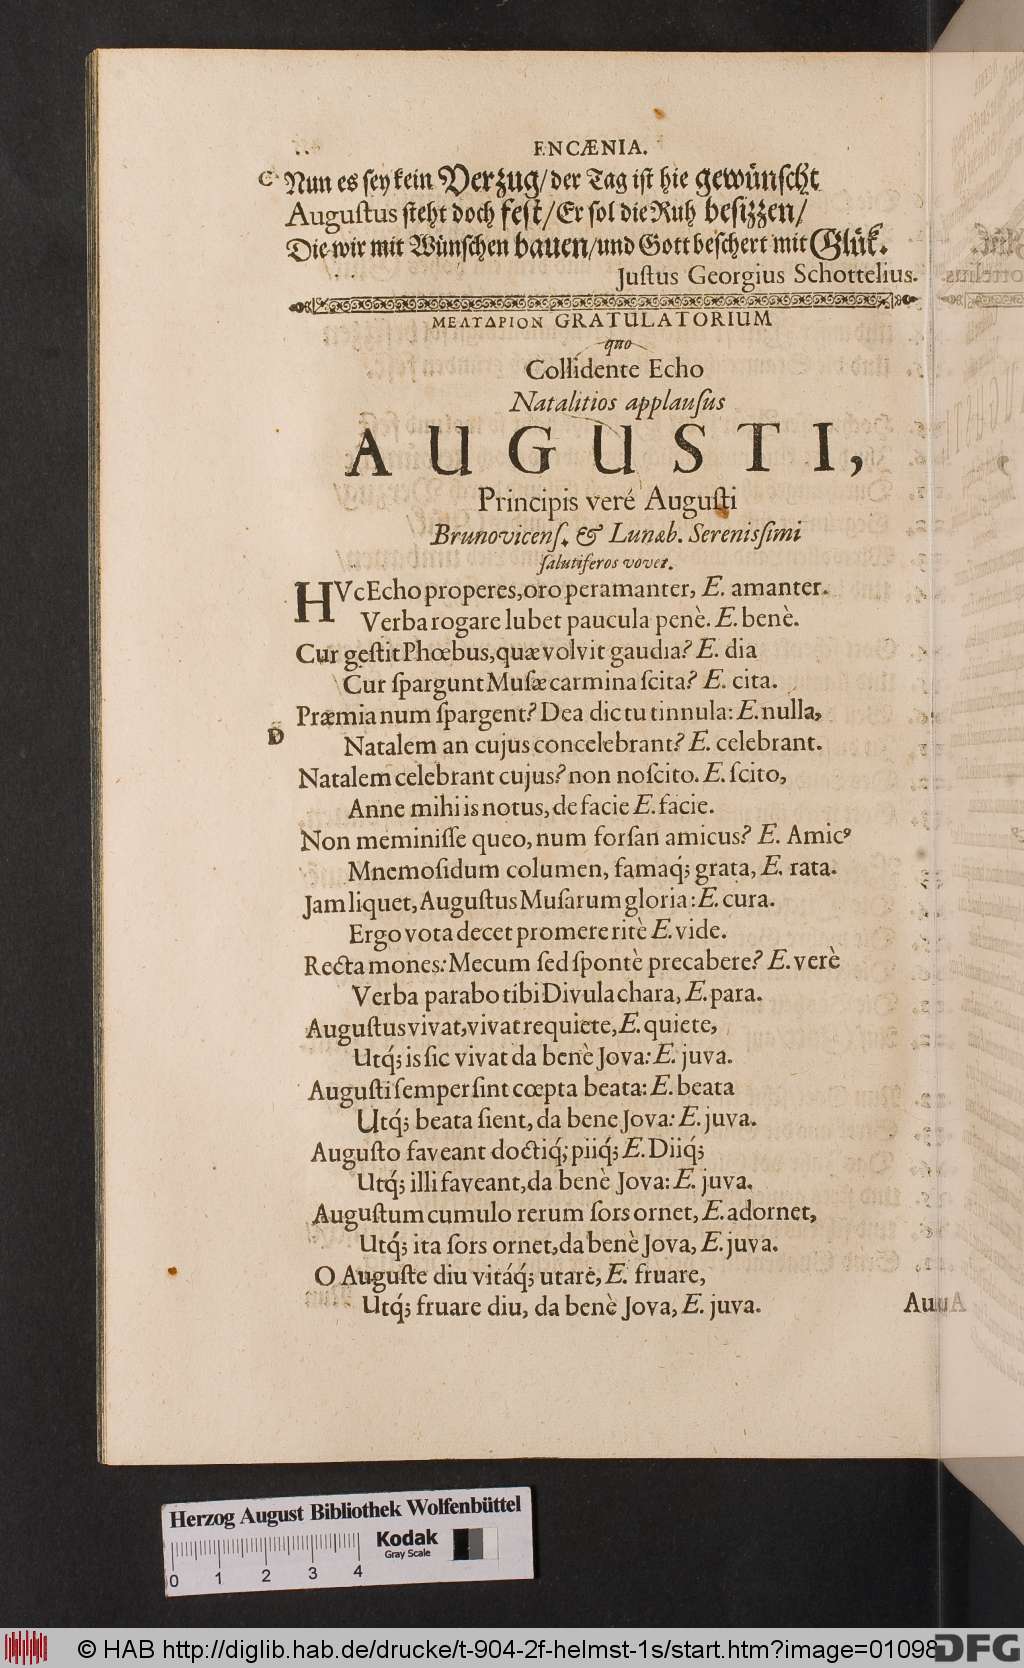 ENCÆNIA.
C Nun es sey kein Verzug/ der Tag ist hie gewünscht
Auguſtus steht doch fest/ Er sol die Ruh besizzen/
Die wir mit Wünschen bauen/ und Gott beschert mit Glük.
Juſtus Georgius Schottelius.
ΜΕΛΥΔΡΙΟΝ GRATULATORIUM
quo
Collidente Echo
Natalitios applauſus
AUGUSTI,
Principis veré Auguſti
Brunovicenſ. & Lunæb. Sereniſſimi
ſalutiferos vovet.
HVc Echo properes, oro peramanter, E. amanter.
Verba rogare lubet paucula penè. E. benè.
Cur geſtit Phœbus, quæ volvit gaudia? E. dia
Cur ſpargunt Muſæ carmina ſcita? E. cita.
Præmia num ſpargent? Dea dic tu tinnula: E. nulla,
D
Natalem an cujus concelebrant? E. celebrant.
Natalem celebrant cujus? non noſcito. E. ſcito,
Anne mihi is notus, de facie E. facie.
Non meminiſſe queo, num forſan amicus? E. Amicꝰ
Mnemoſidum columen, famaq́; grata, E. rata.
Jam liquet, Auguſtus Muſarum gloria: E. cura.
Ergo vota decet promere ritè E. vide.
Recta mones: Mecum ſed ſpontè precabere? E. verè
Verba parabo tibi Divula chara, E. para.
Auguſtus vivat, vivat requiete, E. quiete,
Utq́; is ſic vivat da benè Jova: E. juva.
Auguſti ſemper ſint cœpta beata: E. beata
Utq́; beata ſient, da bene Jova: E. juva.
Auguſto faveant doctiq́; piiq́; E. Diiq́;
Utq́; illi faveant, da benè Jova: E. juva.
Auguſtum cumulo rerum ſors ornet, E. adornet,
Utq́; ita ſors ornet, da benè Jova, E. juva.
O Auguſte diu vitáq́; utare, E. fruare,
Utq́; fruare diu, da benè Jova, E. juva.
Herzog August Bibliothek Wolfenbüttel
0 1 2 3 4
Kodak
Gray Scale
© HAB http://diglib.hab.de/drucke/t-904-2f-helmst-1s/start.htm?image=01098
DFG